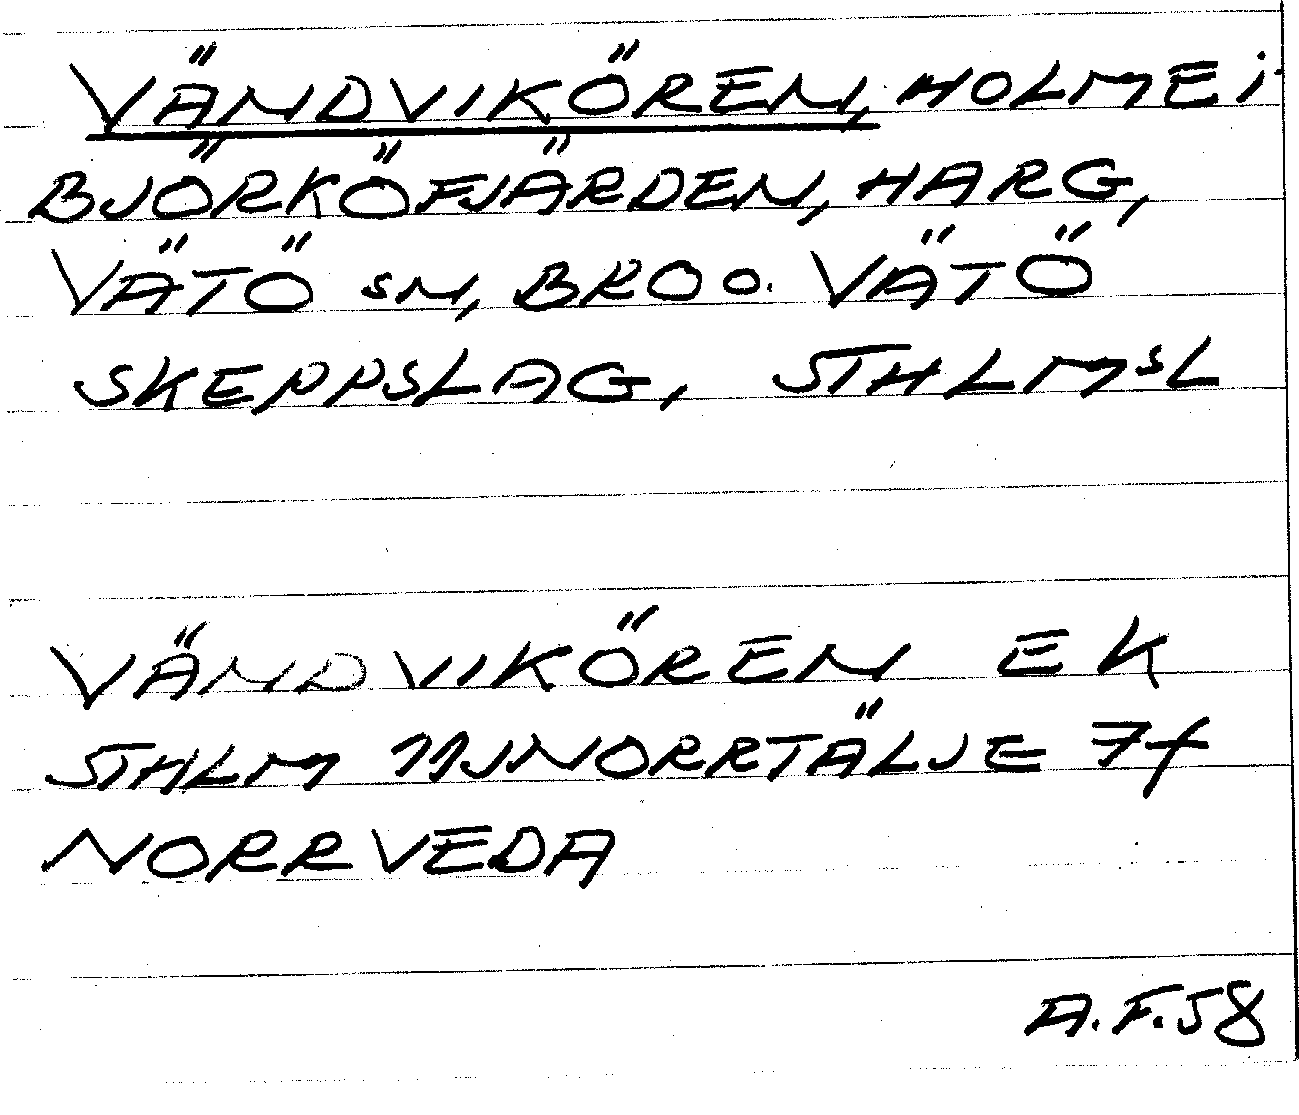 VÄNDVIKÖREN, HOLME i
BJÖRKÖFJÄRDEN, HARG,
VÄTÖ sN, BRO o. VÄTÖ
SKEPPSLAG, STHLMsL
VÄNDVIKÖREN EK
STHLM 11J NORRTÄLJE 7f
NORRVEDA
A.F.58